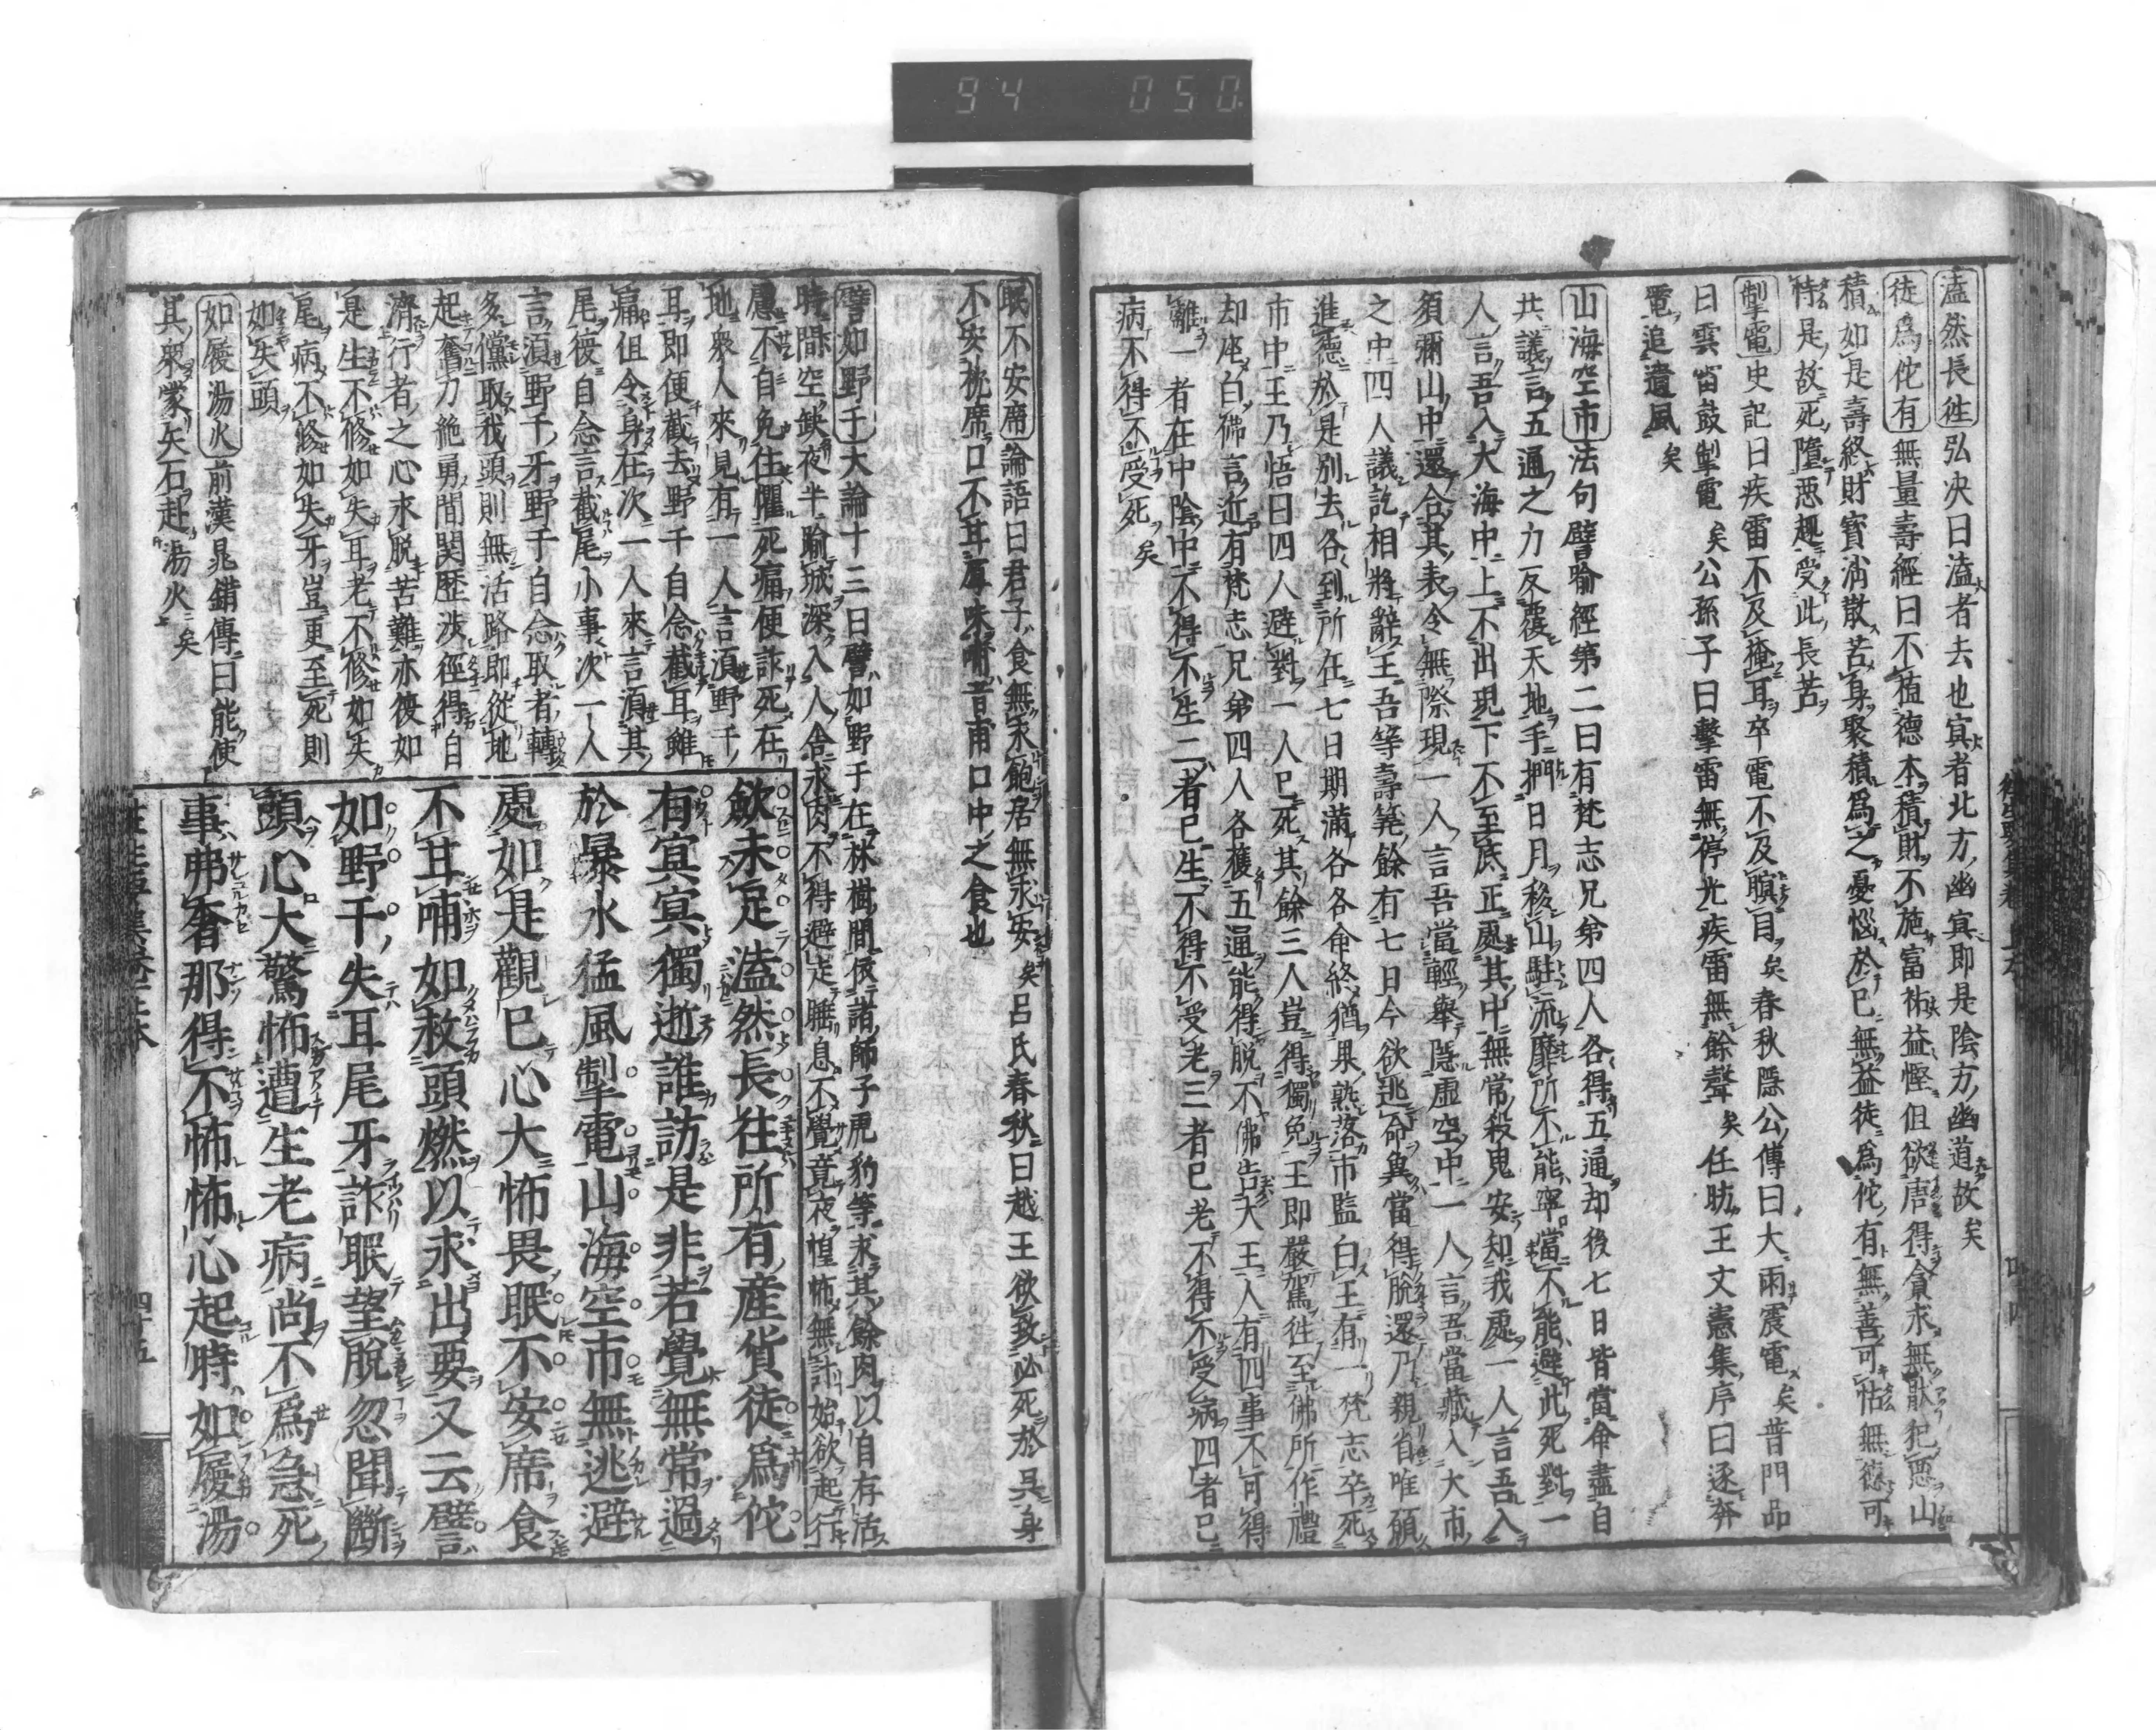 94 050
溘然長徃 弘决曰溘者去也㝠者北方幽㝠即是陰方幽道故矣
徒爲佗有 無量壽經曰不植德本積財不施富祐益慳但欲唐得貪求無猒犯惡山
積如是壽終財寳消散苦身聚積爲之憂惱於己無益徒爲佗有無善可怙無德可
恃是故死墮惡趣受此長苦
掣電 史記曰疾雷不及掩耳卒電不及瞑目矣春秋隱公傳曰大雨震電矣普門品
曰雲雷鼓掣電矣公孫子曰擊雷無停光疾雷無餘聲矣任昉王文憲集序曰逐奔
電追遺風矣
山海空市 法句譬喻經第二曰有梵志兄弟四人各得五通却後七日皆當命盡自
共議言五通之力反覆天地手捫日月移山駐流靡所不能寧當不能避此死對一
人言吾入大海中上不出現下不至底正處其中無常殺鬼安知我處一人言吾入
須彌山中還合其表令無際現一人言吾當輕舉隱虛空中一人言吾當藏入大市
之中四人議訖相將辭王吾等壽筭餘有七日今欲逃命兾當得脫還乃親省唯願
進德於是別去各到所在七日期滿各各命終猶果熟落市監白王有一梵志卒死
市中王乃悟曰四人避對一人已死其餘三人豈得獨免王即嚴駕徃至佛所作禮
却座白佛言近有梵志兄弟四人各獲五通能得脫不佛告大王人有四事不可得
離一者在中陰中不得不生二者已生不得不受老三者已老不得不受病四者已
病不得不受死矣
眠不安席 論語曰君子食無求飽居無求安矣呂氏春秋曰越王欲致必死於吳身
不安枕席口不甘厚味哺音甫口中之食也
譬如野干 大論十三曰譬如野干在林樹間依諸師子虎豹等求其餘肉以自存活
時間空缺夜半踰城深入人舍求肉不得避走睡息不覺竟夜惶怖無計始欲起行
慮不自免住懼死痛便詐死在
地衆人來見有一人言湏野干
耳即便截去野干自念截耳雖
痛但令身在次一人來言湏其
尾復自念言截尾小事次一人
言湏野干牙野干自念取者轉
多儻取我頭則無活路即從地
起奮力絶勇間関歷涉徑得自
濟行者之心求脫苦難亦復如
是生不修如失耳老不修如失
尾病不修如失牙豈更至死則
如失頭
如履湯火 前漢晁錯傳曰能使
其衆蒙矢石赴湯火矣
歛未足溘然長往所有產貨徒爲佗
有㝠㝠獨逝誰訪是非若覺無常過
於暴水猛風掣電山海空市無逃避
處如是觀已心大怖畏眠不安席食
不甘哺如救頭燃以求出要又云譬
如野干失耳尾牙詐眠望脫忽聞斷
頭心大驚怖遭生老病尚不爲急死
事弗奢那得不怖怖心起時如履湯
四十五